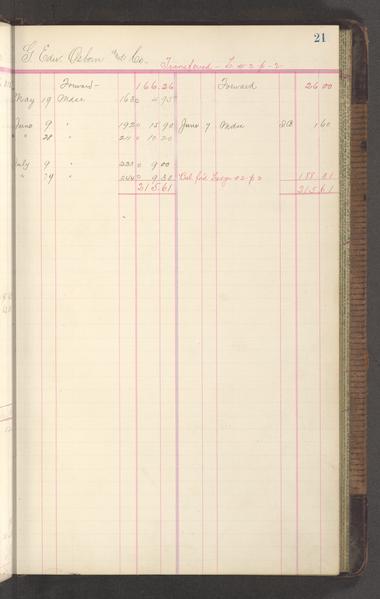 21
G Edw. Osborn & Co. Transfered - L #2 p-2
Forward- 166.26 Forward 26 00
May 19 Mdse 160 4.95
June 9 " 192 15.90 June 7 Mdse 1 60
" 28 " 211 10.20
July 9 " 223 9 00
" 29 " 244 9.30 Bal fwd Ledger #2 p 2 188 01
215.61 215.61